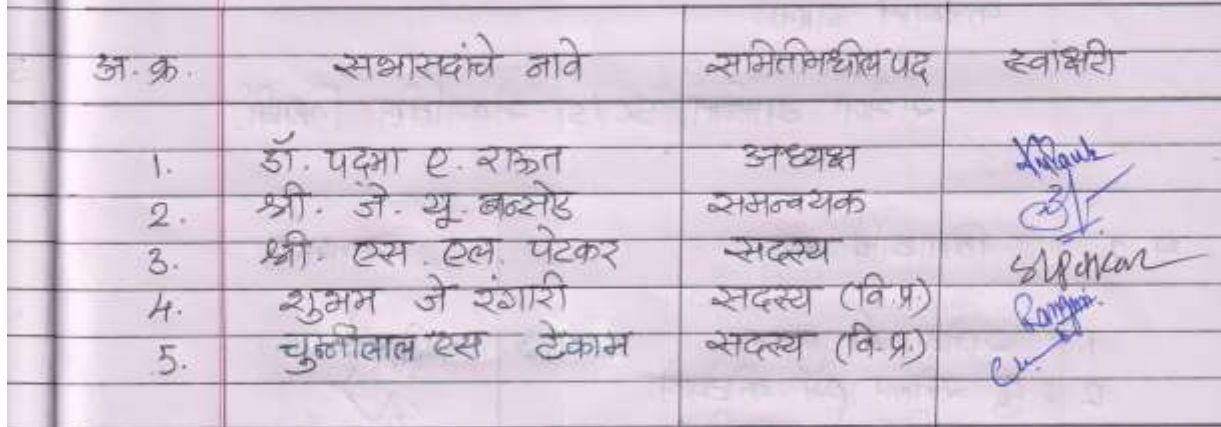 अ. क्र. सभासदांचे नावे समितीमधील पद स्वाक्षरी
1. डॉ. पदमा ए. राऊत अध्यक्ष
2. श्री. जे. यू. बन्सोड समन्वयक
3. श्री. एस. एल. पेटकर सदस्य
4. शुभम जे रंगारी सदस्य (वि.प्र.)
5. चुन्नीलाल एस टेकाम सदस्य (वि.प्र.)